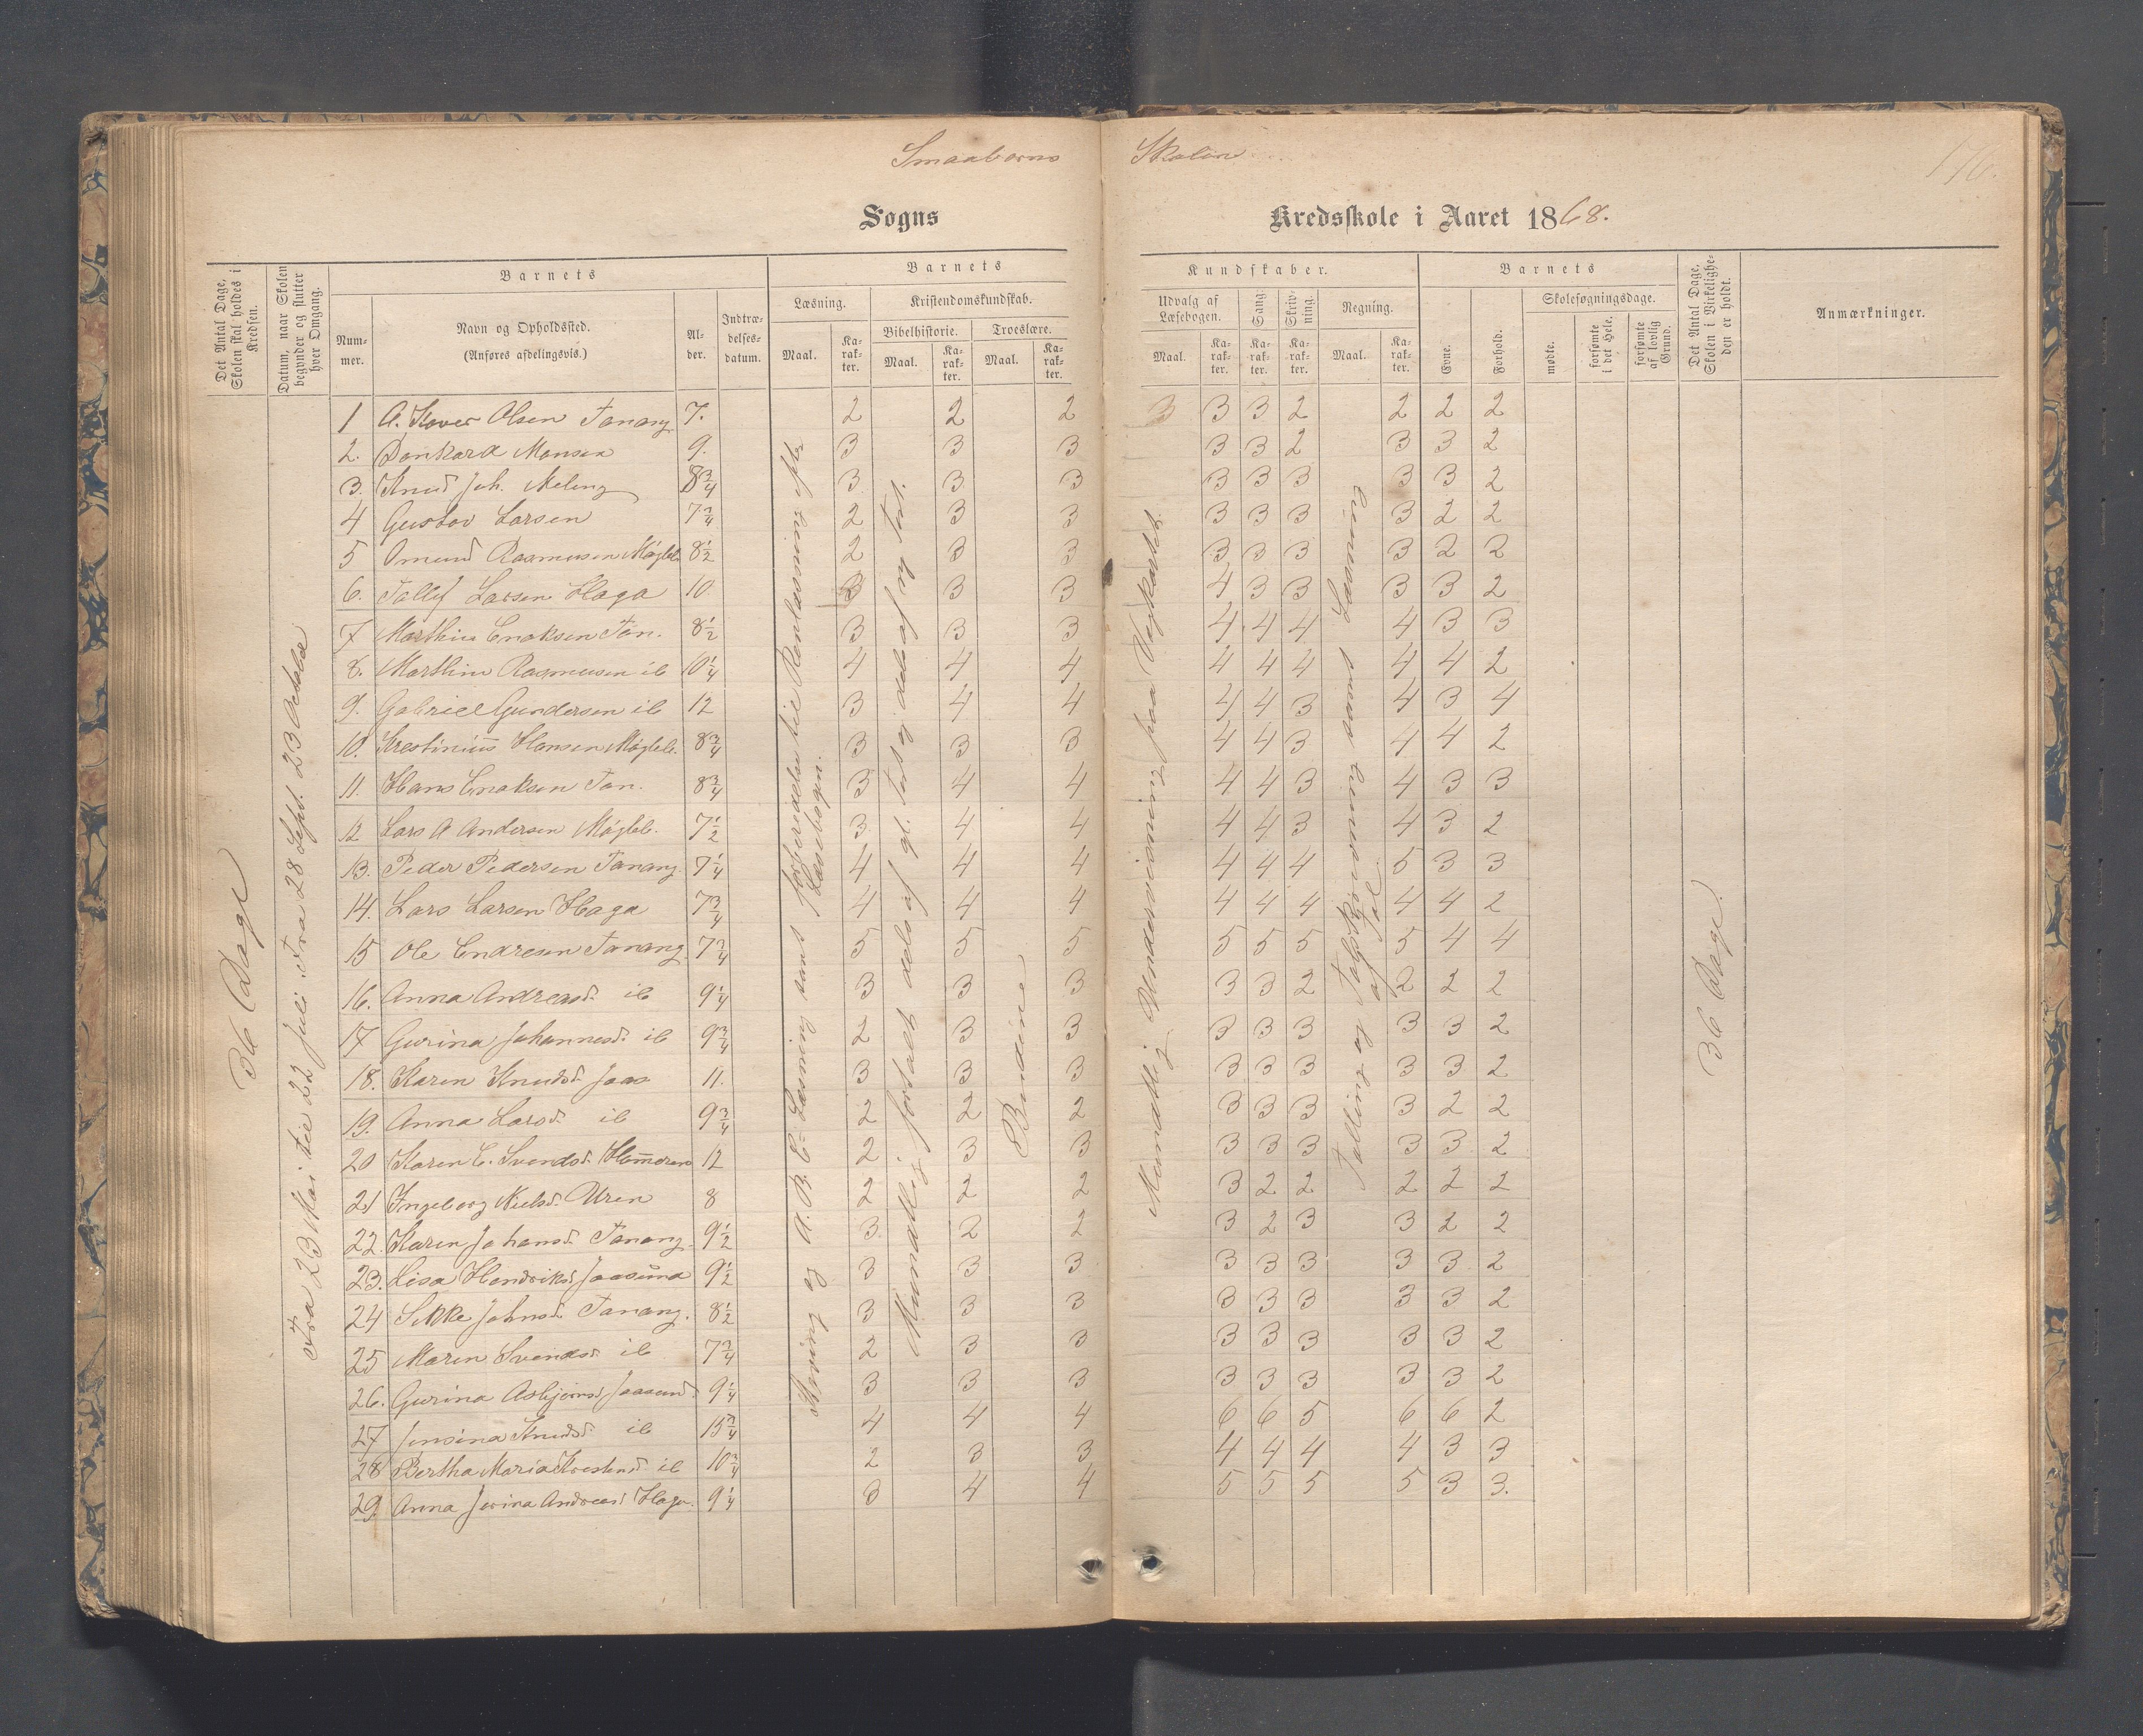 Smaabørns Skolen
176.
Sogns Kredsskole i Aaret 1868.
Det Antal Dage, Skolen skal holdes i Kredsen.
Datum, naar Skolen begynder og slutter hver Omgang.
Barnets
Nummer.
Navn og Opholdssted.
(Anføres afdelingsvis.)
Alder.
Indtrædelsesdatum.
Barnets
Læsning.
Maal.
Karakter.
Kristendomskundskab.
Bibelhistorie.
Maal.
Karakter.
Troeslære.
Maal.
Karakter.
Kundskaber.
Udvalg af Læsebogen.
Maal.
Karakter.
Sang.
Karakter.
Skrivning.
Karakter.
Regning.
Maal.
Karakter.
Barnets
Evne.
Forhold.
Skolesøgningsdage.
mødte.
forsømte i det Hele.
forsømte af lovlig Grund.
Det Antal Dage, Skolen i Virkeligheden er holdt.
Anmærkninger.
36 Dage
Fra 23 Mai til 22 Juli. Fra 28 Sept. 23 Octobr
Staving og A.B.C. Læsning samt
Læsebogen.
Mundtlig fortalt dels af gl. Test og dels af ny Test.
Mundtlig Underviisning paa
Tælling og
af Tal
36 Dage.
1 Olsen Tanang 7. 2 2 2 3 3 3 2 2 2 2
2. Monsen 9. 3 3 3 3 3 2 3 3 2
3. Knud Joh. Meling 8 3/4 3 3 3 3 3 3 3 3 2
4 Gustav Larsen 7 3/4 2 3 3 3 3 3 3 2 2
5 Omund Rasmusen Mægleb. 8 1/2 2 3 3 3 3 3 3 2 2
6. Tollef Larsen Haga 10 3 3 3 4 3 3 3 3 2
7 Marthin Enoksen Tan. 8 1/2 3 3 3 4 4 4 4 3 3
8. Marthin Rasmusen ib 10 1/4 4 4 4 4 4 4 4 4 2
9. Gabriel Gundersen ib 12 3 4 4 4 4 3 4 3 4
10. Krestinius Hansen Mægleb. 8 3/4 3 3 3 4 4 3 4 4 2
11. Hans Enoksen Tan. 8 3/4 3 4 4 4 4 3 4 3 3
12 Lars A Andersen Mægleb. 7 1/2 3 4 4 4 4 3 4 3 2
13. Peder Pedersen Tanang. 7 1/4 4 4 4 4 4 4 5 3 3
14. Lars Larsen Haga 7 3/4 4 4 4 4 4 4 4 4 2
15 Ole Endresen Tanang 7 3/4 5 5 5 5 5 5 5 4 4
16. Anna Andreasd. ib 9 1/4 3 3 3 3 3 2 2 2 2
17 Gurina Johannesd. ib 9 3/4 2 3 3 3 3 3 3 3 2
18. Karen Knudsd. Jaas 11. 3 3 3 3 3 3 3 3 2
19. Anna Larsd. ib 9 3/4 2 2 2 3 3 3 3 2 2
20 Karen E. Svendsd. 12 2 3 3 3 3 3 3 3 2
21 Ingeborg Nielsd. Uren 8 2 2 2 3 2 2 2 2 2
22. Karen Johansd. Tanang. 9 1/2 3 2 2 3 2 3 3 2 2
23. Lisa Hendriksd. Jaasund 9 1/2 3 3 3 3 3 3 3 3 2
24 Sikke Johnsd. Tanang. 8 1/2 3 3 3 3 3 3 3 3 2
25 Maren Svendsd. ib 7 3/4 2 3 3 3 3 3 3 3 2
26. Gurina Asbjørnsd. Jaasund. 9 1/4 3 3 3 3 3 3 3 3 2
27 Jensina Knudsd. ib 15 3/4 4 4 4 6 6 5 6 6 2
28 Bertha Maria ib 10 3/4 2 3 3 4 4 4 4 3 3
29. Anna Andreasd. Haga. 9 1/4 3 4 4 5 5 5 5 3 3.